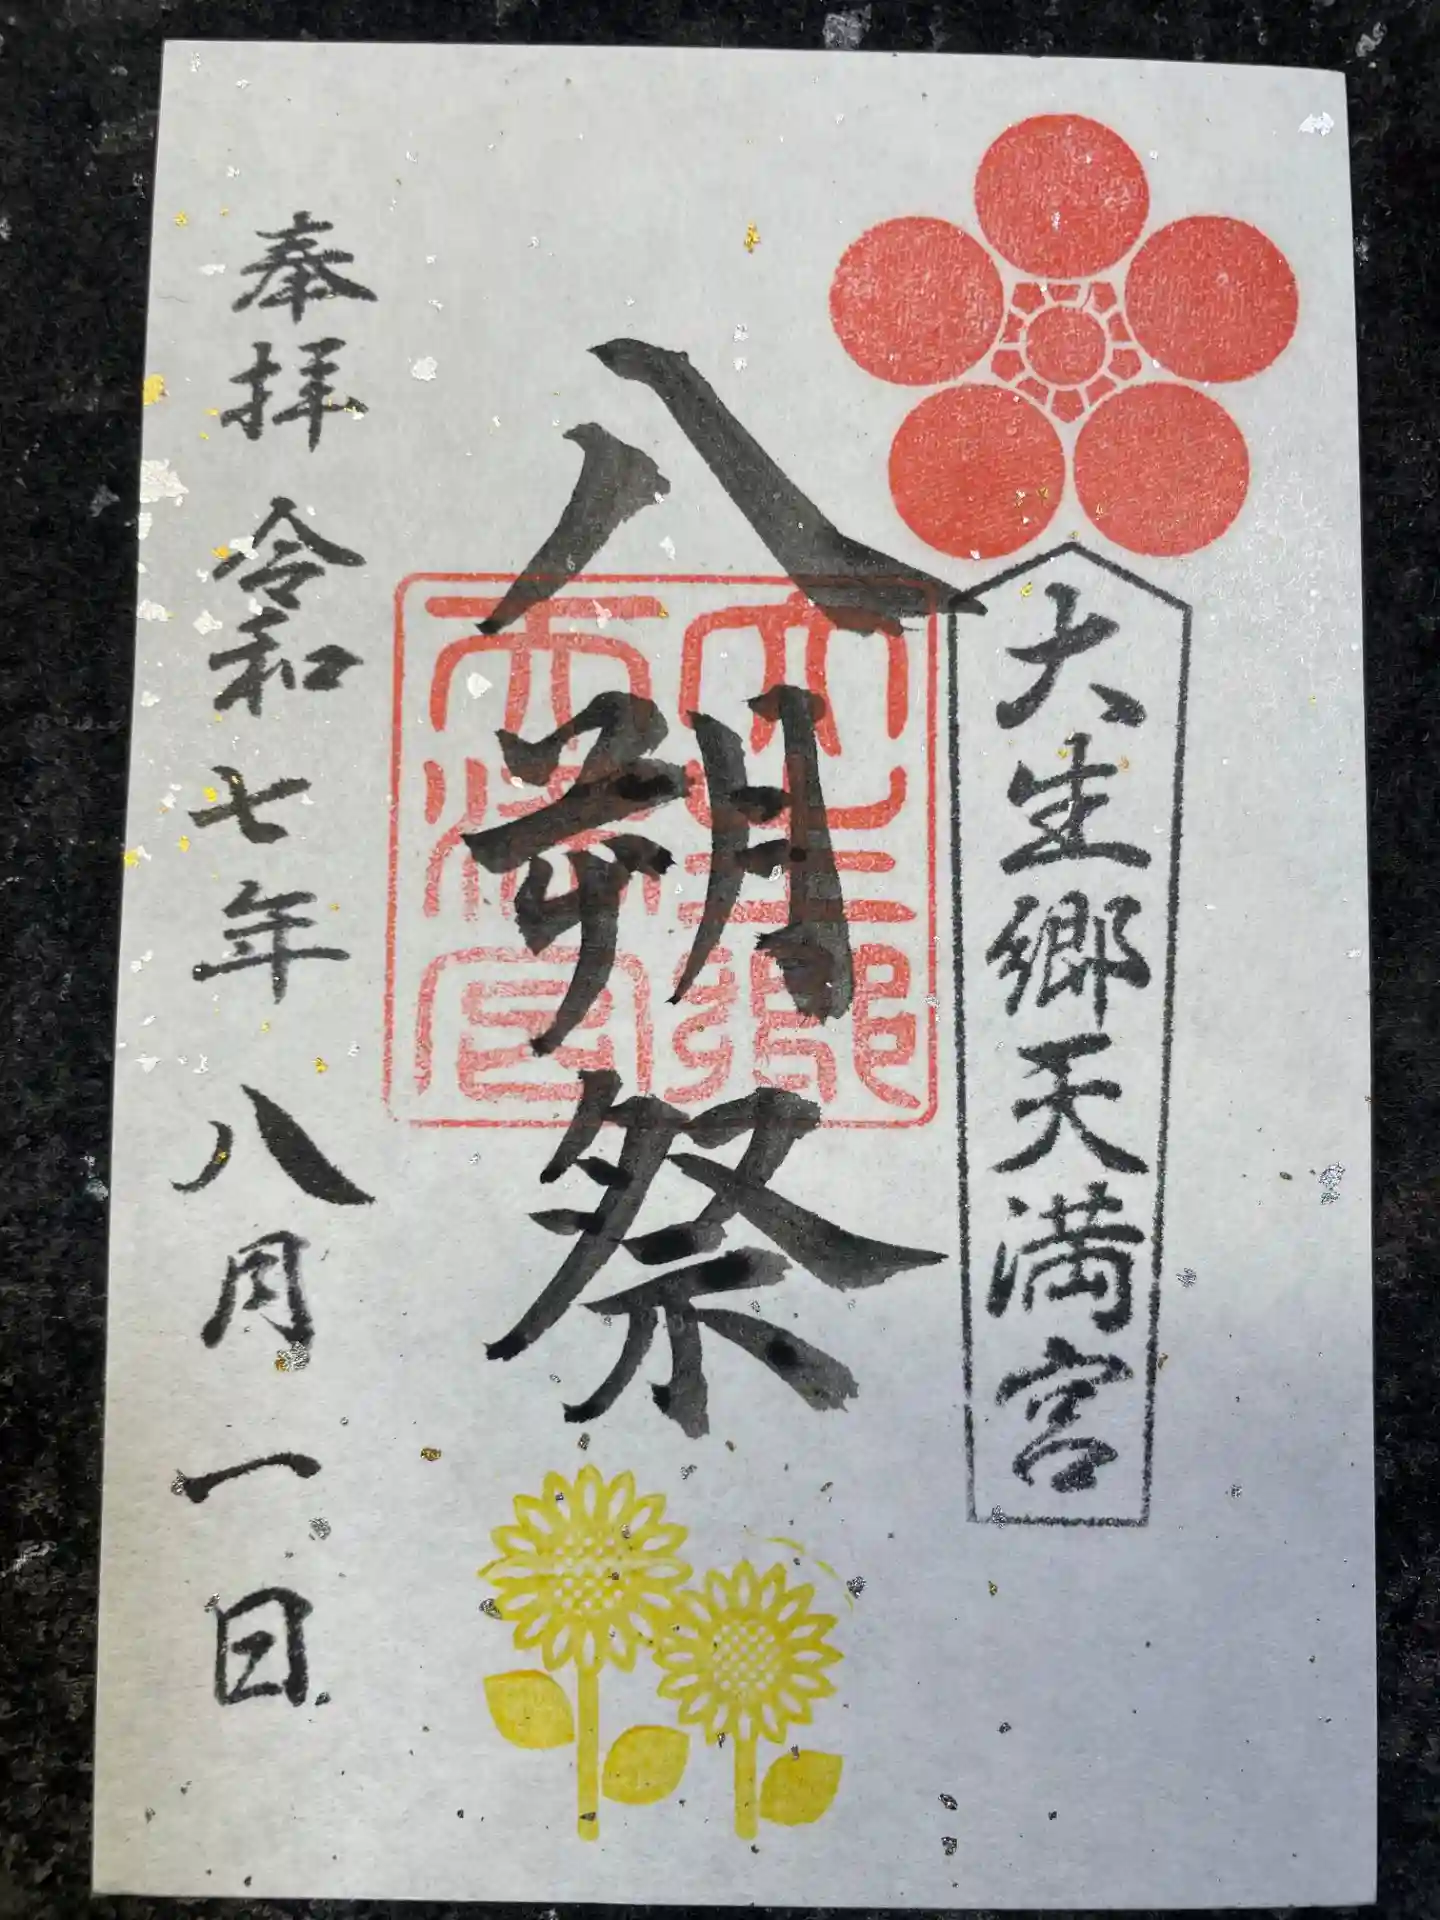 大生郷天満宮
八朔祭
大生郷天満宮
奉拝 令和七年八月一日